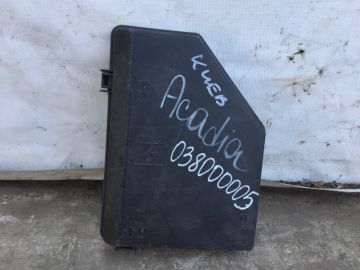 КИЕВ
Acadia
038000005